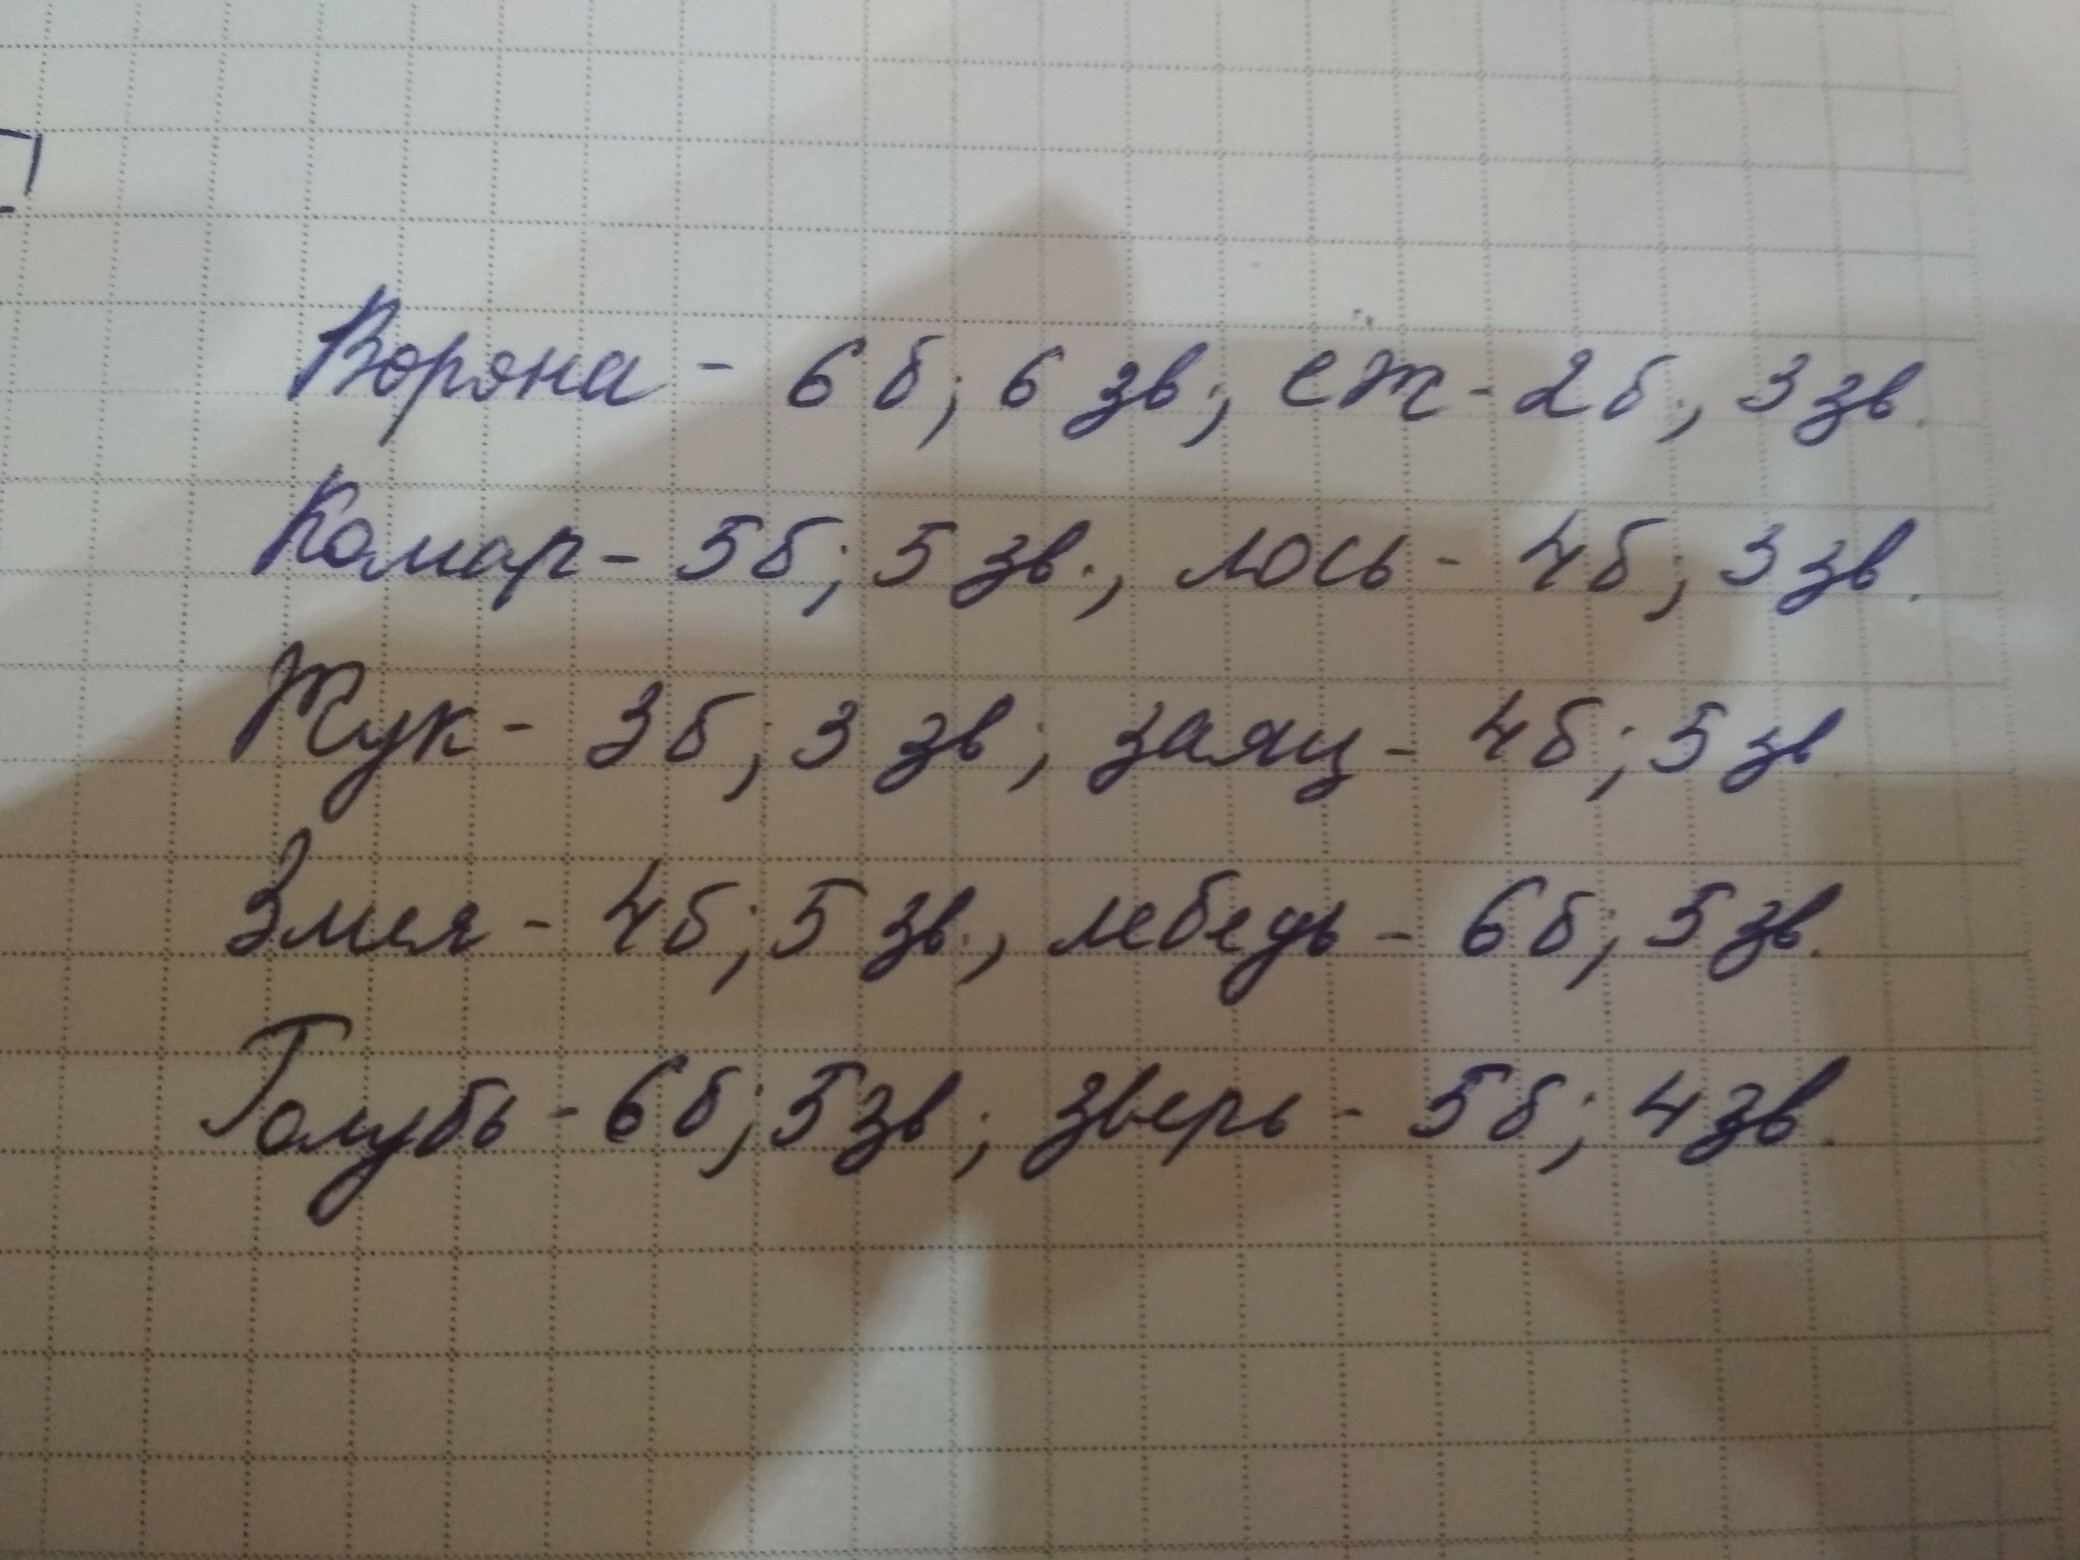 Ворона - 6 б; 6 зв., еж - 2б., 3 зв.
Комар - 5б; 5 зв., лось - 4б; 3 зв.
Жук - 3б; 3 зв; заяц - 4б; 5 зв
Змея - 4б; 5 зв., лебедь - 6б; 5 зв.
Голубь - 6б; 5 зв; зверь - 5б; 4 зв.